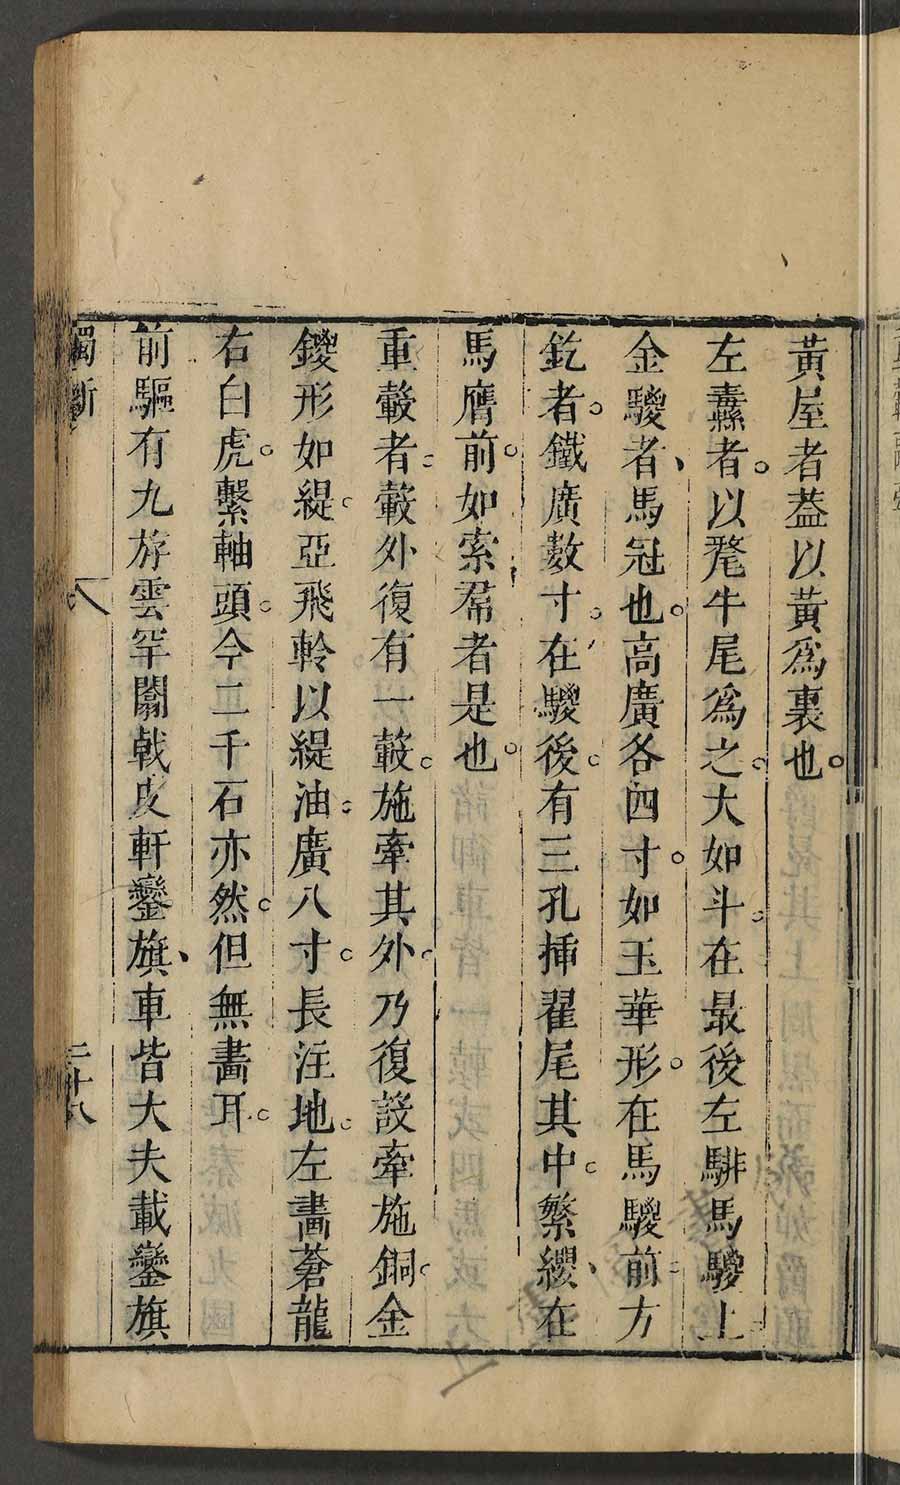 黃屋者葢以黃爲裏也
左纛者以氂牛尾爲之大如斗在最後左騑馬騣上
金騣者馬冠也高廣各四寸如玉華形在馬騣前方
釳者鐵廣數寸在騣後有三孔揷翟尾其中繁纓在
馬膺前如索帬者是也
重轂者轂外復有一轂施牽其外乃復設牽施銅金
鑁形如緹亞飛軨以緹油廣八寸長注地左畵蒼龍
右白虎繫軸頭今二千石亦然但無畵耳
前驅有九斿雲罕闟戟皮軒鑾旗車皆大夫載鑾旗
獨斷 二十八